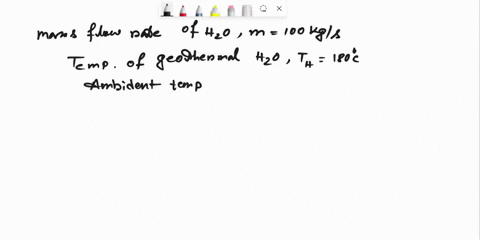 mass flow rate of H2O, m = 100 kg/s
Temp. of geothermal H2O, TH = 180°c
Ambident temp